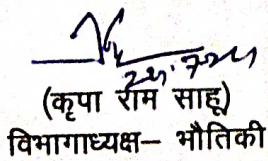 (कृपा राम साहू)
विभागाध्यक्ष– भौतिकी